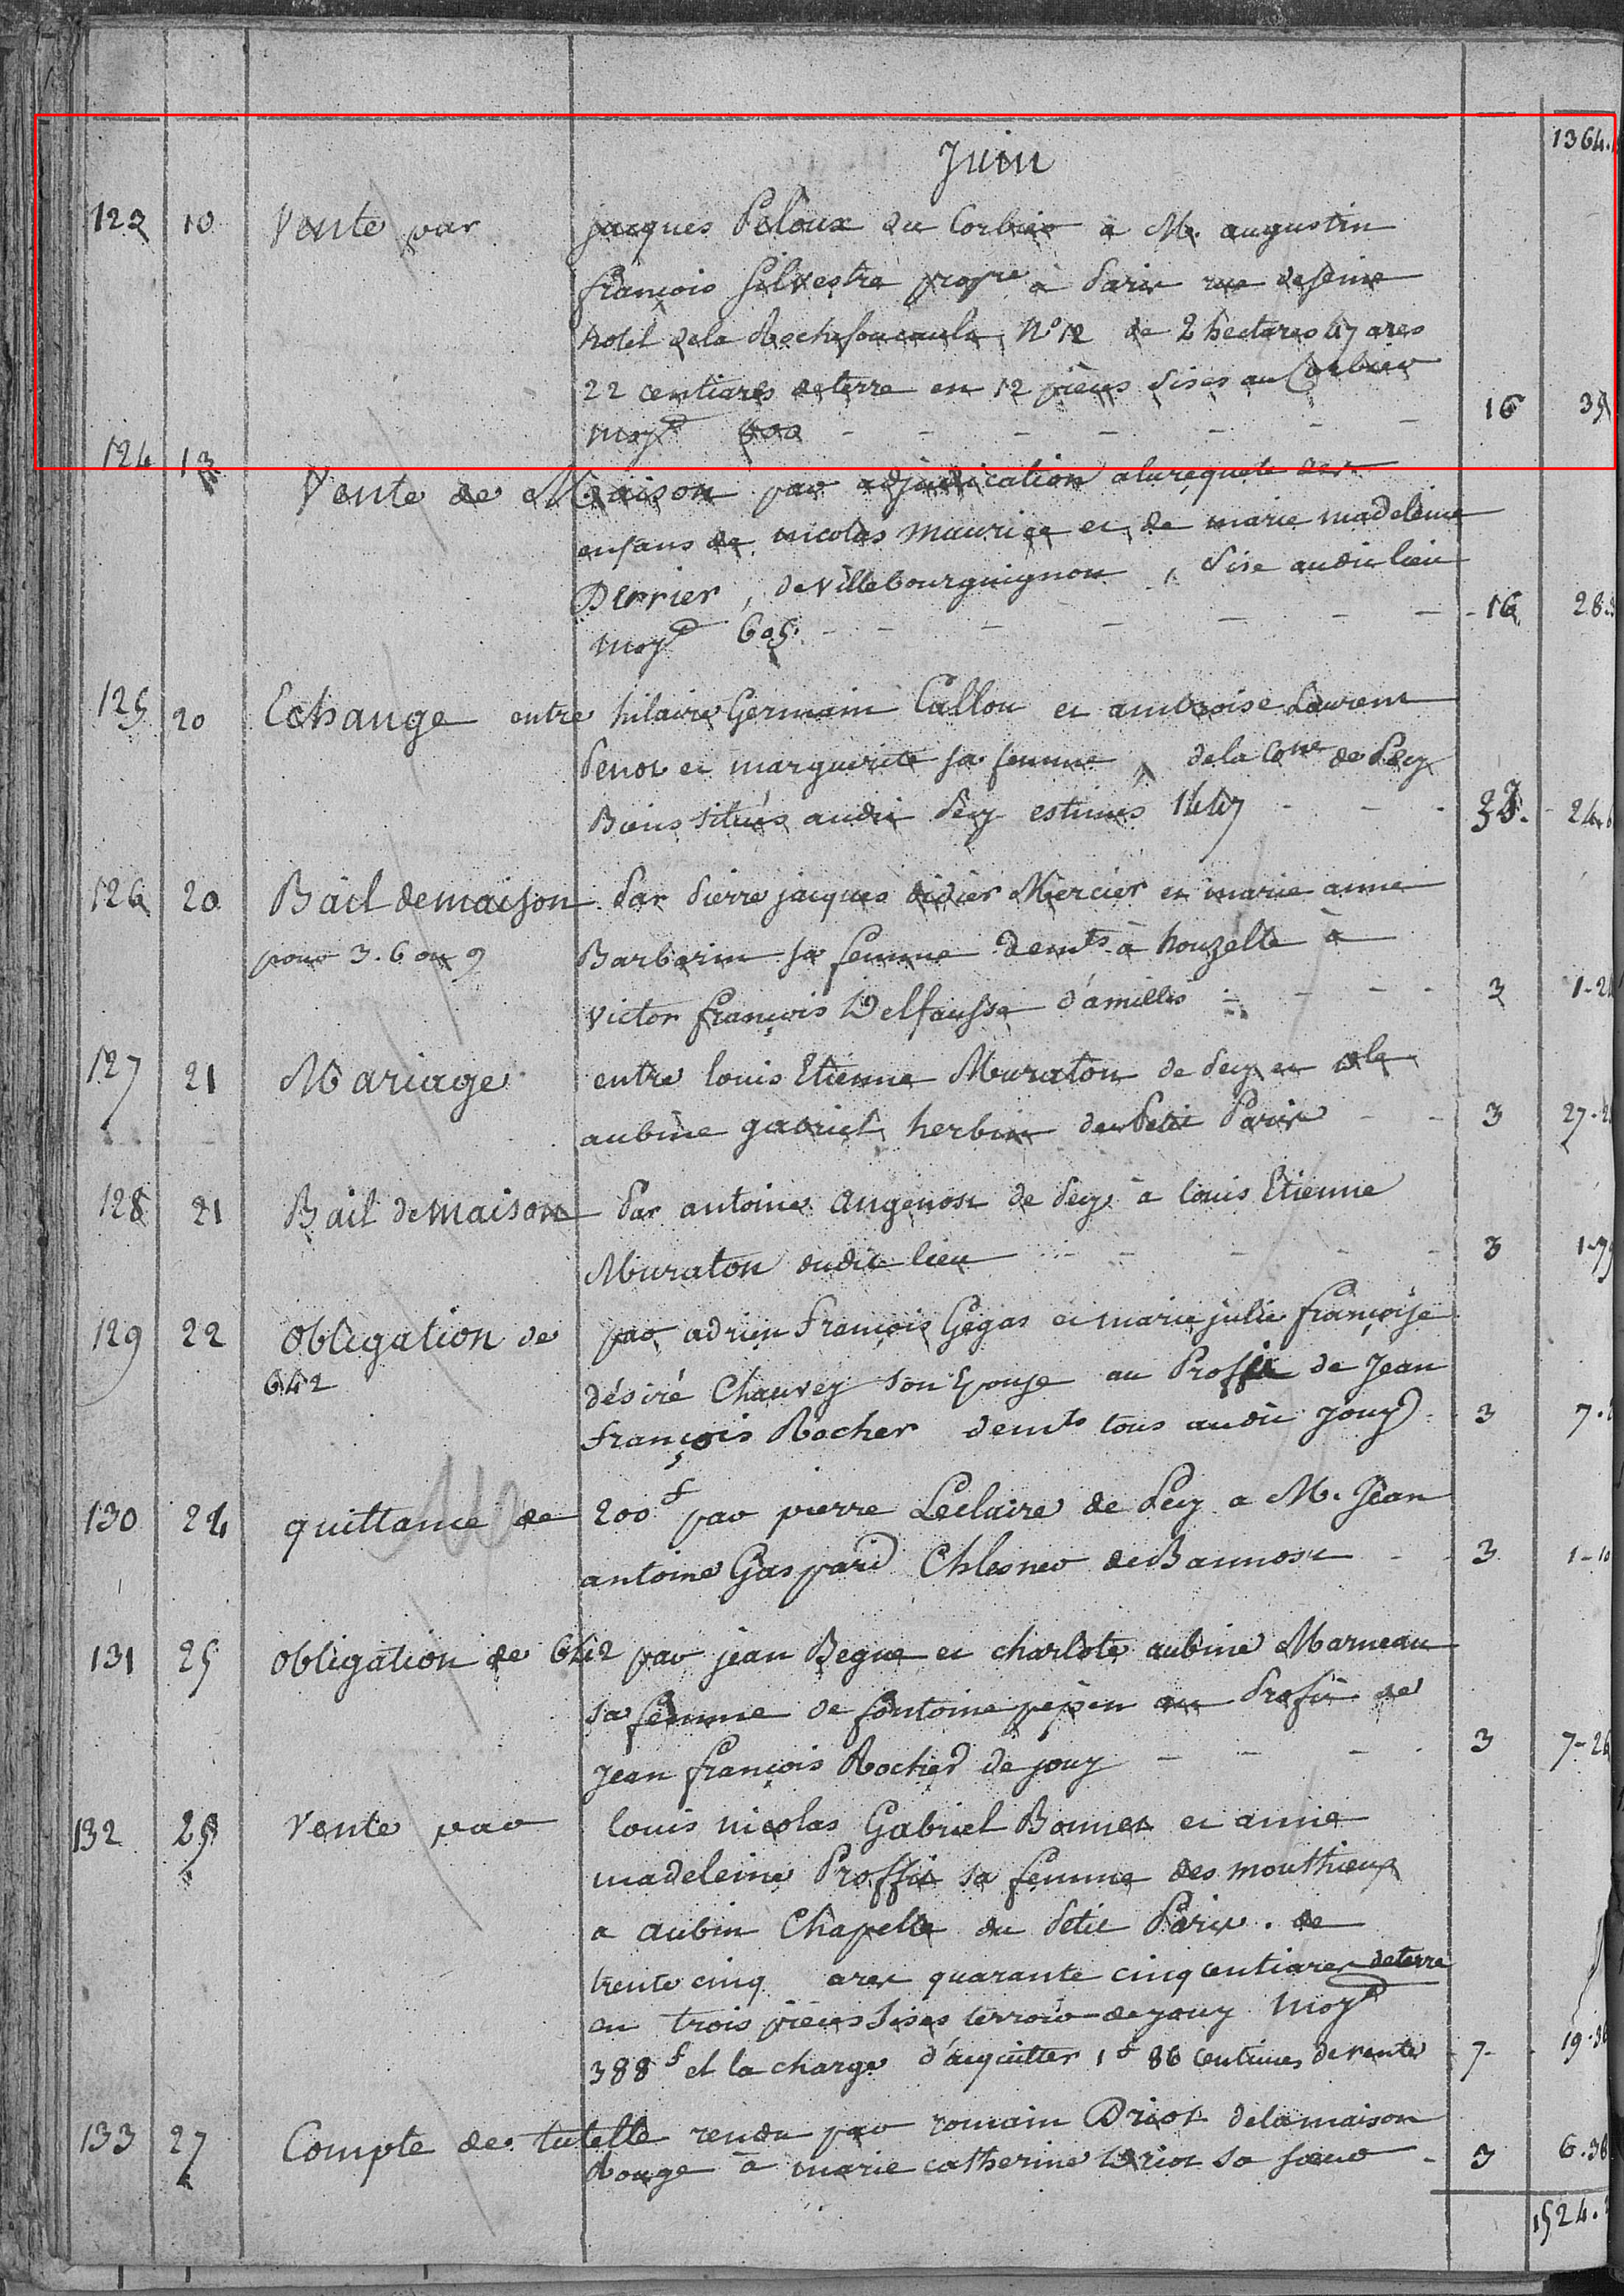 1364.
Juin
123 10 Vente par jacques Peloux du Corbier a M. augustin
françois Silvestre propre à Paris rue de Seine
hotel dela Rochefoucauld, N° 12 de 2 hectares 47 ares
22 centiares de terre en 12 pièces sises au Corbier
moyd 600 - - - - - - - 16 35
124 13 Vente de Maison par adjudication a la requete des
enfans de nicolas maurice et de marie madeleine
Perrier, de villebourguignon, sise audit lieu
moyd 605. - - - - - - 16 28.
125 20 Echange entre hilaire Germain Callou et ambroise Laurent
Penot et marguerite sa femme, dela Cone de Pecy
Biens situés audit Pecy estimés 1447 - - - 24.
126 20 Bail de maison par Pierre jacques didier Mercier et marie anne
pour 3. 6 ou 9 Barbarin sa femme demts à houzelle à
victor françois Delfausse d'amillis - - - - 3 1-2
127 21 Mariage entre louis Etienne Muraton de Pecy et dle
aubine gabriel herbin du Petit Paris - - 3 27-2
128 21 Bail de maison Par antoine angenost de Pecy a louis Etienne
Muraton dudit lieu - - - - - 3 1-75
129 22 obligation de par adrien françois Gegas et marie julie françoise
642 désiré Chauvey son Epouse au Proffit de Jean
françois Rocher demts tous audit Jouy - 3 7.
130 24 quittance de 200f par pierre Leclaire de Pecy a M. Jean
antoine Gaspard Chlesner de Bannost - - 3 1-10
131 25 obligation de 642 par jean Begue et charlote aubine Marneau
sa femme de fontaine pepin au Profit de
Jean françois Rocher de jouy - - - - 3 7-26
132 25 Vente par louis nicolas Gabriel Bonnet et anne
madeleine Proffit sa femme des mouthieux
a aubin Chapelle du Petit Paris. de
trente cinq ares quarante cinq centiares de terre
en trois pièces sises terroir de jouy moyd
388f et la charge d'acquitter 1f 86 centimes de rente 7- 19.36
133 27 Compte de tutelle rendu par romain Driot dela maison
Rouge à marie catherine Driot sa soeur - 3 6.36
1524.